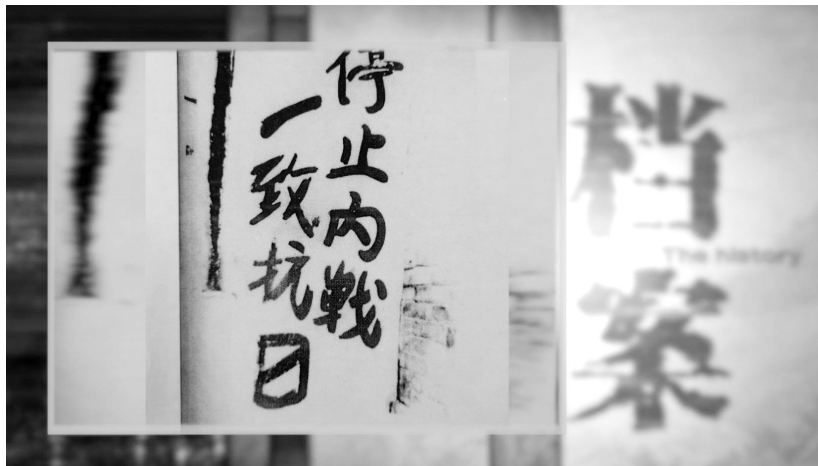 停止内戦
一致抗日
档案
The history